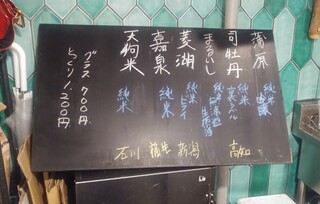 蒲原 純米吟醸
司牡丹 純米 高知
まるいし 純米吟醸
菱湖 純米 ドライ 新潟
嘉泉 純米 福生
天狗米 純米 石川
グラス 700円
とっくり 1,200円